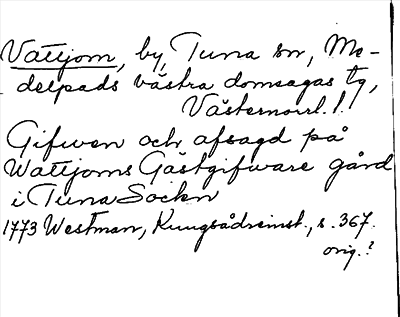 Vattjom, by, Tuna sn, Me-
delpads västra domsagas tg,
Västernorrl. l.
Gifwen och afsagd på
Wattjoms Gästgifware gård
i Tuna Sockn
1773 Westman, Kungsådreinst., s. 367.
orig.?